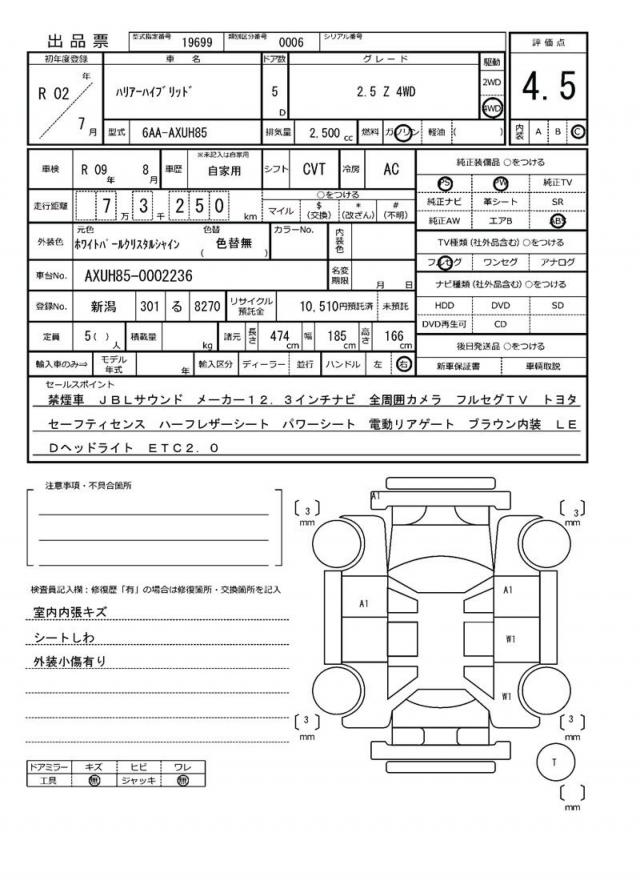 出品票 型式指定番号 19699 類別区分番号 0006 シリアル番号
評価点
4.5
初年度登録 車 名 ドア数 グレード 駆動
R 02 年 7 月 ハリアーハイブリッド 5 D 2.5 Z 4WD 2WD 4WD
型式 6AA-AXUH85 排気量 2,500 cc 燃料 ガソリン 軽油 ( ) 内装 A B C
車検 R 09 年 8 月 車歴 ※未記入は自家用 自家用 シフト CVT 冷房 AC
走行距離 7 万 3 千 2 5 0 km ○をつける マイル $ (交換) * (改ざん) # (不明)
外装色 元色 ホワイトパールクリスタルシャイン 色替 ( 色替無 ) カラーNo. 内装色
車台No. AXUH85-0002236 名変期限 月 日
登録No. 新潟 301 る 8270 リサイクル預託金 10,510円預託済 未預託
定員 5( ) 人 積載量 kg 諸元 長さ 474 cm 幅 185 cm 高さ 166 cm
輸入車のみ⇒ モデル年式 年 輸入区分 ディーラー 並行 ハンドル 左 右
純正装備品 ○をつける
PS PW 純正TV
純正ナビ 革シート SR
純正AW エアB ABS
TV種類(社外品含む) ○をつける
フルセグ ワンセグ アナログ
ナビ種類(社外品含む) ○をつける
HDD DVD SD
DVD再生可 CD
後日発送品 ○をつける
新車保証書 車輌取説
セールスポイント
禁煙車 JBLサウンド メーカー12.3インチナビ 全周囲カメラ フルセグTV トヨタ
セーフティセンス ハーフレザーシート パワーシート 電動リアゲート ブラウン内装 LE
Dヘッドライト ETC2.0
注意事項・不具合箇所
検査員記入欄:修復歴「有」の場合は修復箇所・交換箇所を記入
室内内張キズ
シートしわ
外装小傷有り
ドアミラー キズ ヒビ ワレ
工具 無 ジャッキ 無
A1
[ 3 ] mm
[ 3 ] mm
A1
A1
W1
W1
[ 3 ] mm
[ 3 ] mm
T
[ ] mm